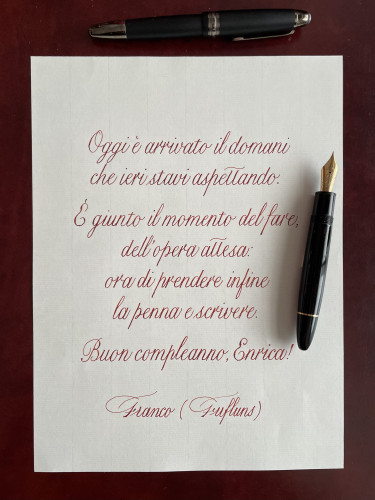 Oggi è arrivato il domani
che ieri stavi aspettando.
È giunto il momento del fare,
dell'opera attesa:
ora di prendere infine
la penna e scrivere.
Buon compleanno, Enrica!
Franco (Fufluns)